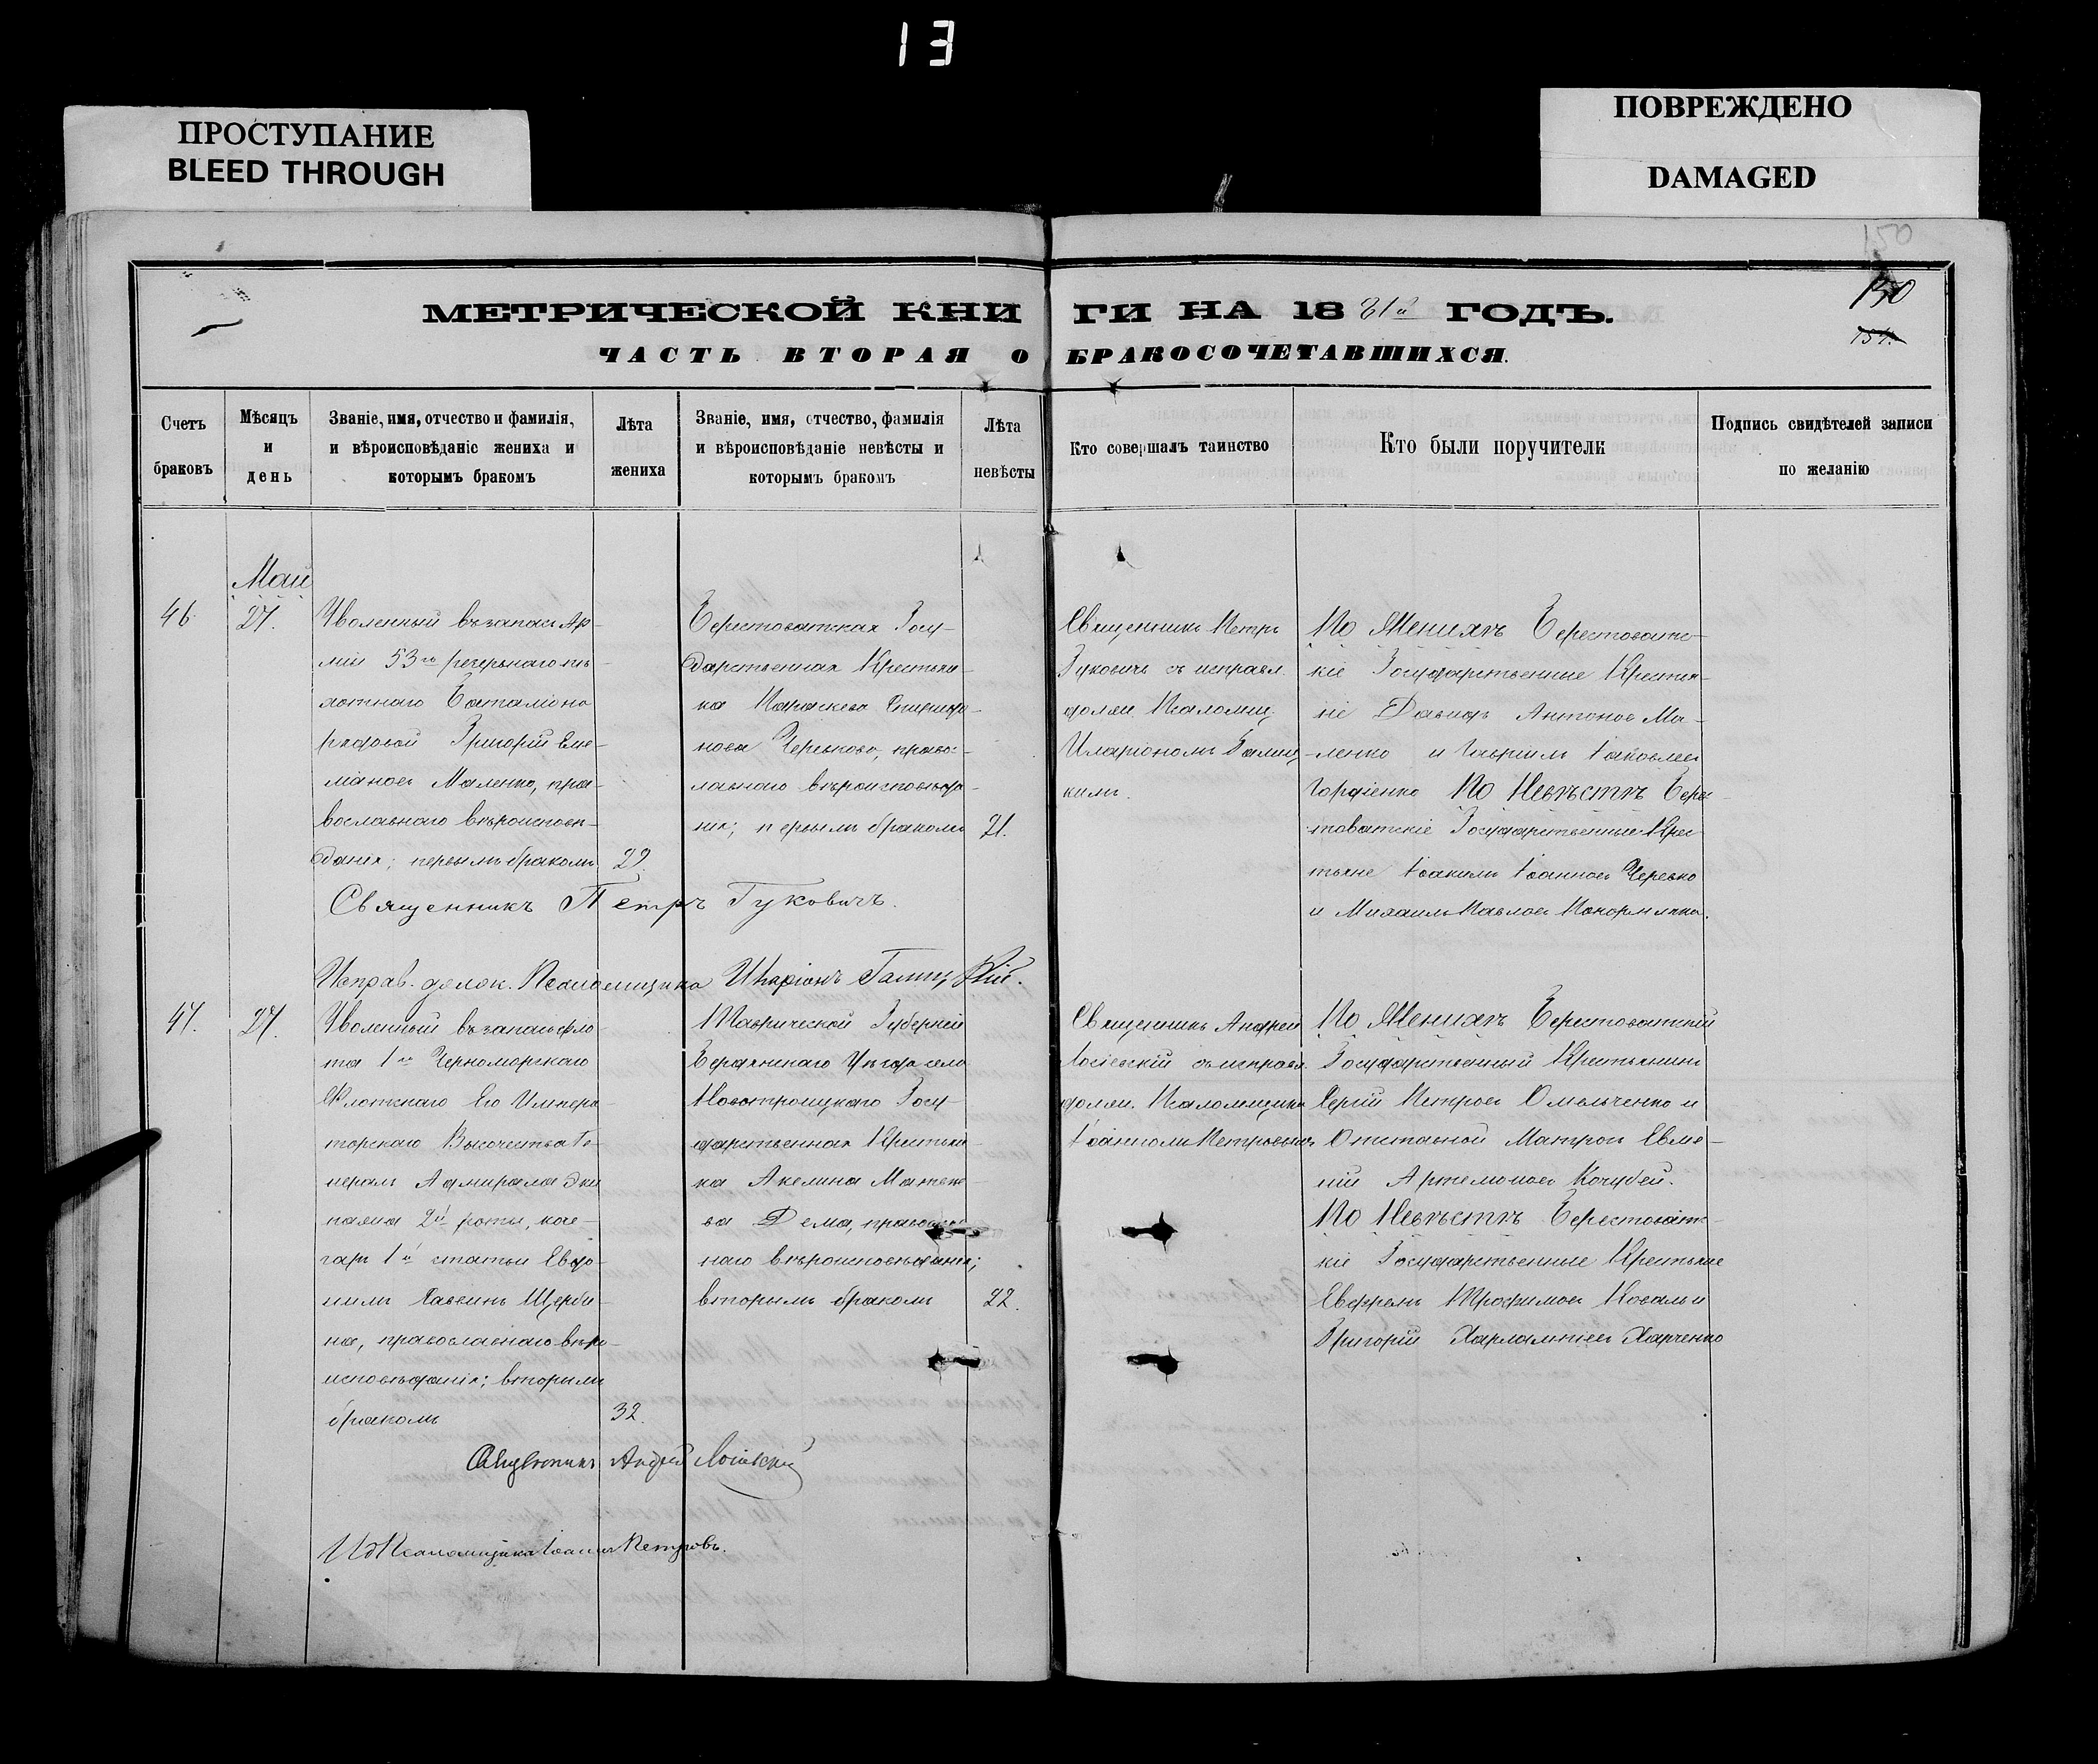 13
ПРОСТУПАНИЕ
BLEED THROUGH
ПОВРЕЖДЕНО
DAMAGED
150
150
151.
МЕТРИЧЕСКОЙ КНИГИ НА 1881й ГОДЪ.
ЧАСТЬ ВТОРАЯ О БРАКОСОЧЕТАВШИХСЯ.
Счетъ
браковъ
Мѣсяцъ
и
день
Званіе, имя, отчество и фамилія,
и вѣроисповѣданіе жениха и
которымъ бракомъ
Лѣта
жениха
Званіе, имя, отчество, фамилія
и вѣроисповѣданіе невѣсты и
которымъ бракомъ
Лѣта
невѣсты
Кто совершалъ таинство
Кто были поручители
Подпись свидѣтелей записи
по желанію
Май
46.
27.
Уволенный въ запасъ Ар-
міи 53го резервнаго пѣ-
хотнаго Баталіона
рядовой Григорій Еме-
ліановъ Маленко, пра-
вославнаго вѣроисповѣ-
данія; первымъ бракомъ
29.
Берестоватская Госу-
дарственная Крестьян-
ка Параскева Спиридо-
нова Черевкова, право-
лавнаго вѣроисповѣда-
нія; первымъ бракомъ
21.
Священникъ Петръ
Гуковичъ съ исправл.
должн. Псаломщ.
Иларіономъ Галиц-
кимъ.
По Женихѣ Берестоватс-
кіе Государственные Крестья-
не Давидъ Антоновъ Ма-
ленко и Гавріилъ Іаковлевъ
Гордіенко По Невѣстѣ Берес-
товатскіе Государственные Крес-
тьяне Іоакимъ Іоанновъ Черевко
и Михаилъ Павловъ
Священникъ Петръ Гуковичъ.
Исправ. должн. Псаломщика Иларіонъ Галицкій.
47.
27.
Уволенный въ запасъ фло-
та 1го Черноморскаго
Флотскаго Его Импера-
торскаго Высочества Ге-
нералъ Адмирала Эки-
пажа 2й роты, коче-
гаръ 1й статьи Евдо-
кимъ Саввинъ Щерби-
на, православнаго вѣро-
исповѣданія; вторымъ
бракомъ
32.
Таврической Губерніи
Бердянскаго Уѣзда села
Новотроицкаго Госу-
дарственная Крестьян-
ка Акелина Матвѣе-
ва Дема, православ-
наго вѣроисповѣданія;
вторымъ бракомъ
22.
Священникъ Андрей
Лосіевскій съ исправл.
должн. Псаломщика
Іоанномъ Петровымъ
По Женихѣ Берестоватскій
Государственный Крестьянинъ
Сергій Петровъ Омельченко и
Отставной Матросъ Евме-
ній Артемоновъ Кочубей.
По Невѣстѣ Берестоватс-
кіе Государственные Крестьяне
Евфремъ Трофимовъ Коваль и
Григорій Харлампіевъ Харченко
Священникъ Андрей Лосіевскій
ИД Псаломщика Іоаннъ Петровъ.